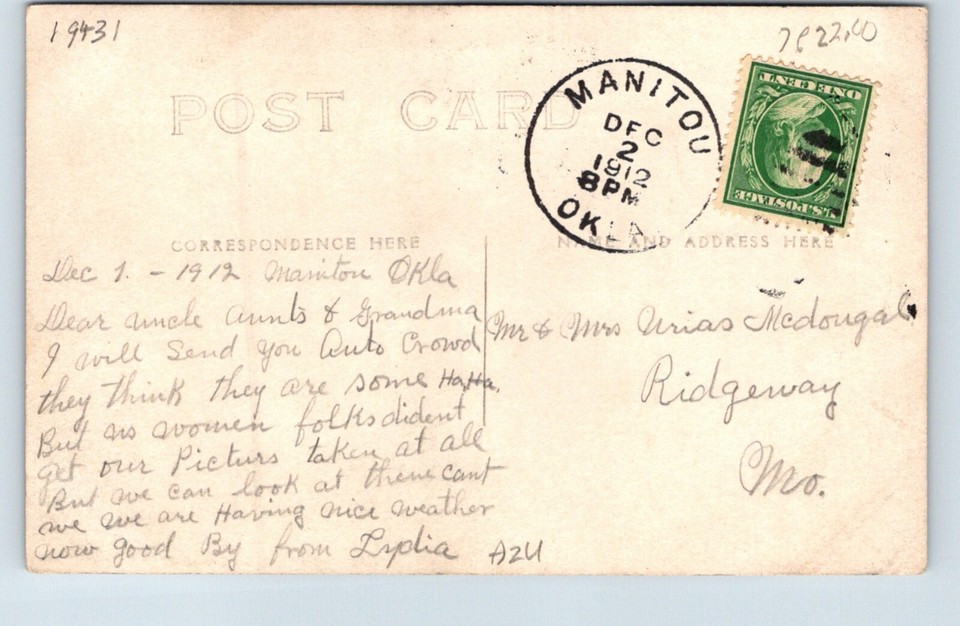 19431
7P22.00
POST CARD
MANITOU
DEC
2
1912
8PM
OKLA
ONE CENT
U.S. POSTAGE
CORRESPONDENCE HERE
NAME AND ADDRESS HERE
Dec 1. - 1912 Manitou Okla
Dear uncle aunts & Grandma
I will Send you Auto Crowd
they think they are some Ha,Ha,
But us women folks dident
get our Picturs taken at all
But we can look at them cant
we we are Having nice weather
now good By from Lydia
AZU
Mr & Mrs Urias Mcdougal
Ridgeway
Mo.